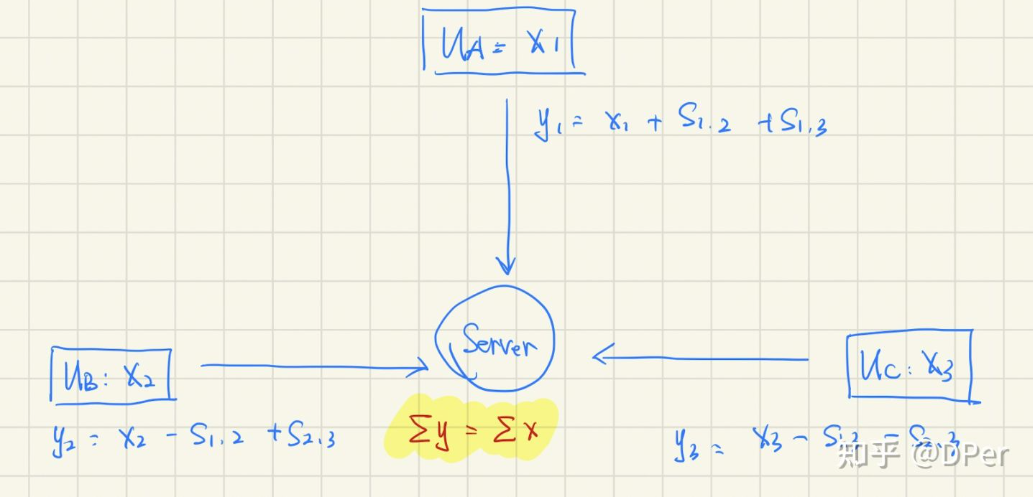 U_A = x_1
y_1 = x_1 + S_{1.2} + S_{1.3}
Server
U_B: x_2
U_C: x_3
y_2 = x_2 - S_{1.2} + S_{2.3}
Σy = Σx
y_3 = x_3 - S_{1.3} - S_{2.3}
知乎 @DPer